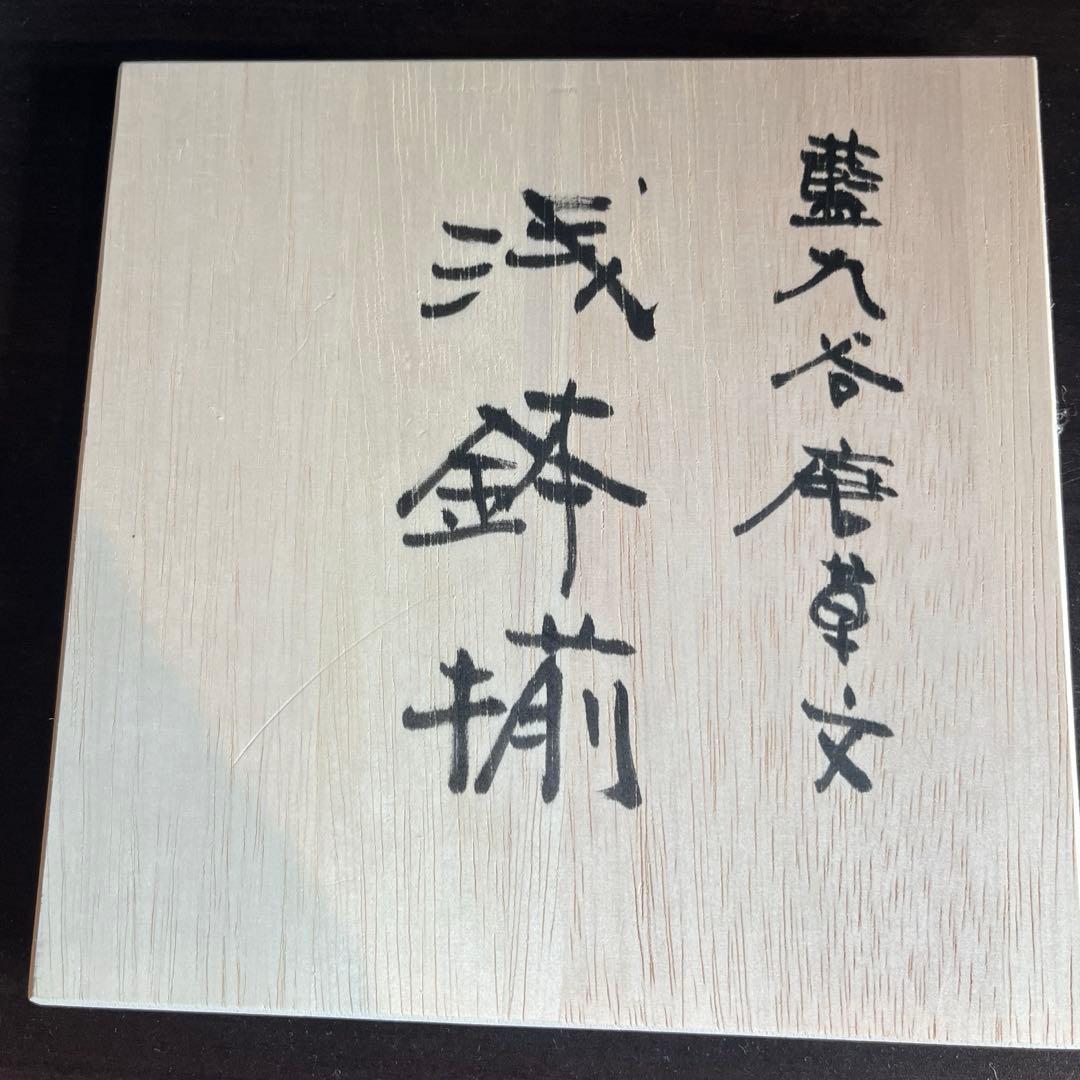 藍九谷唐草文
浅鉢揃